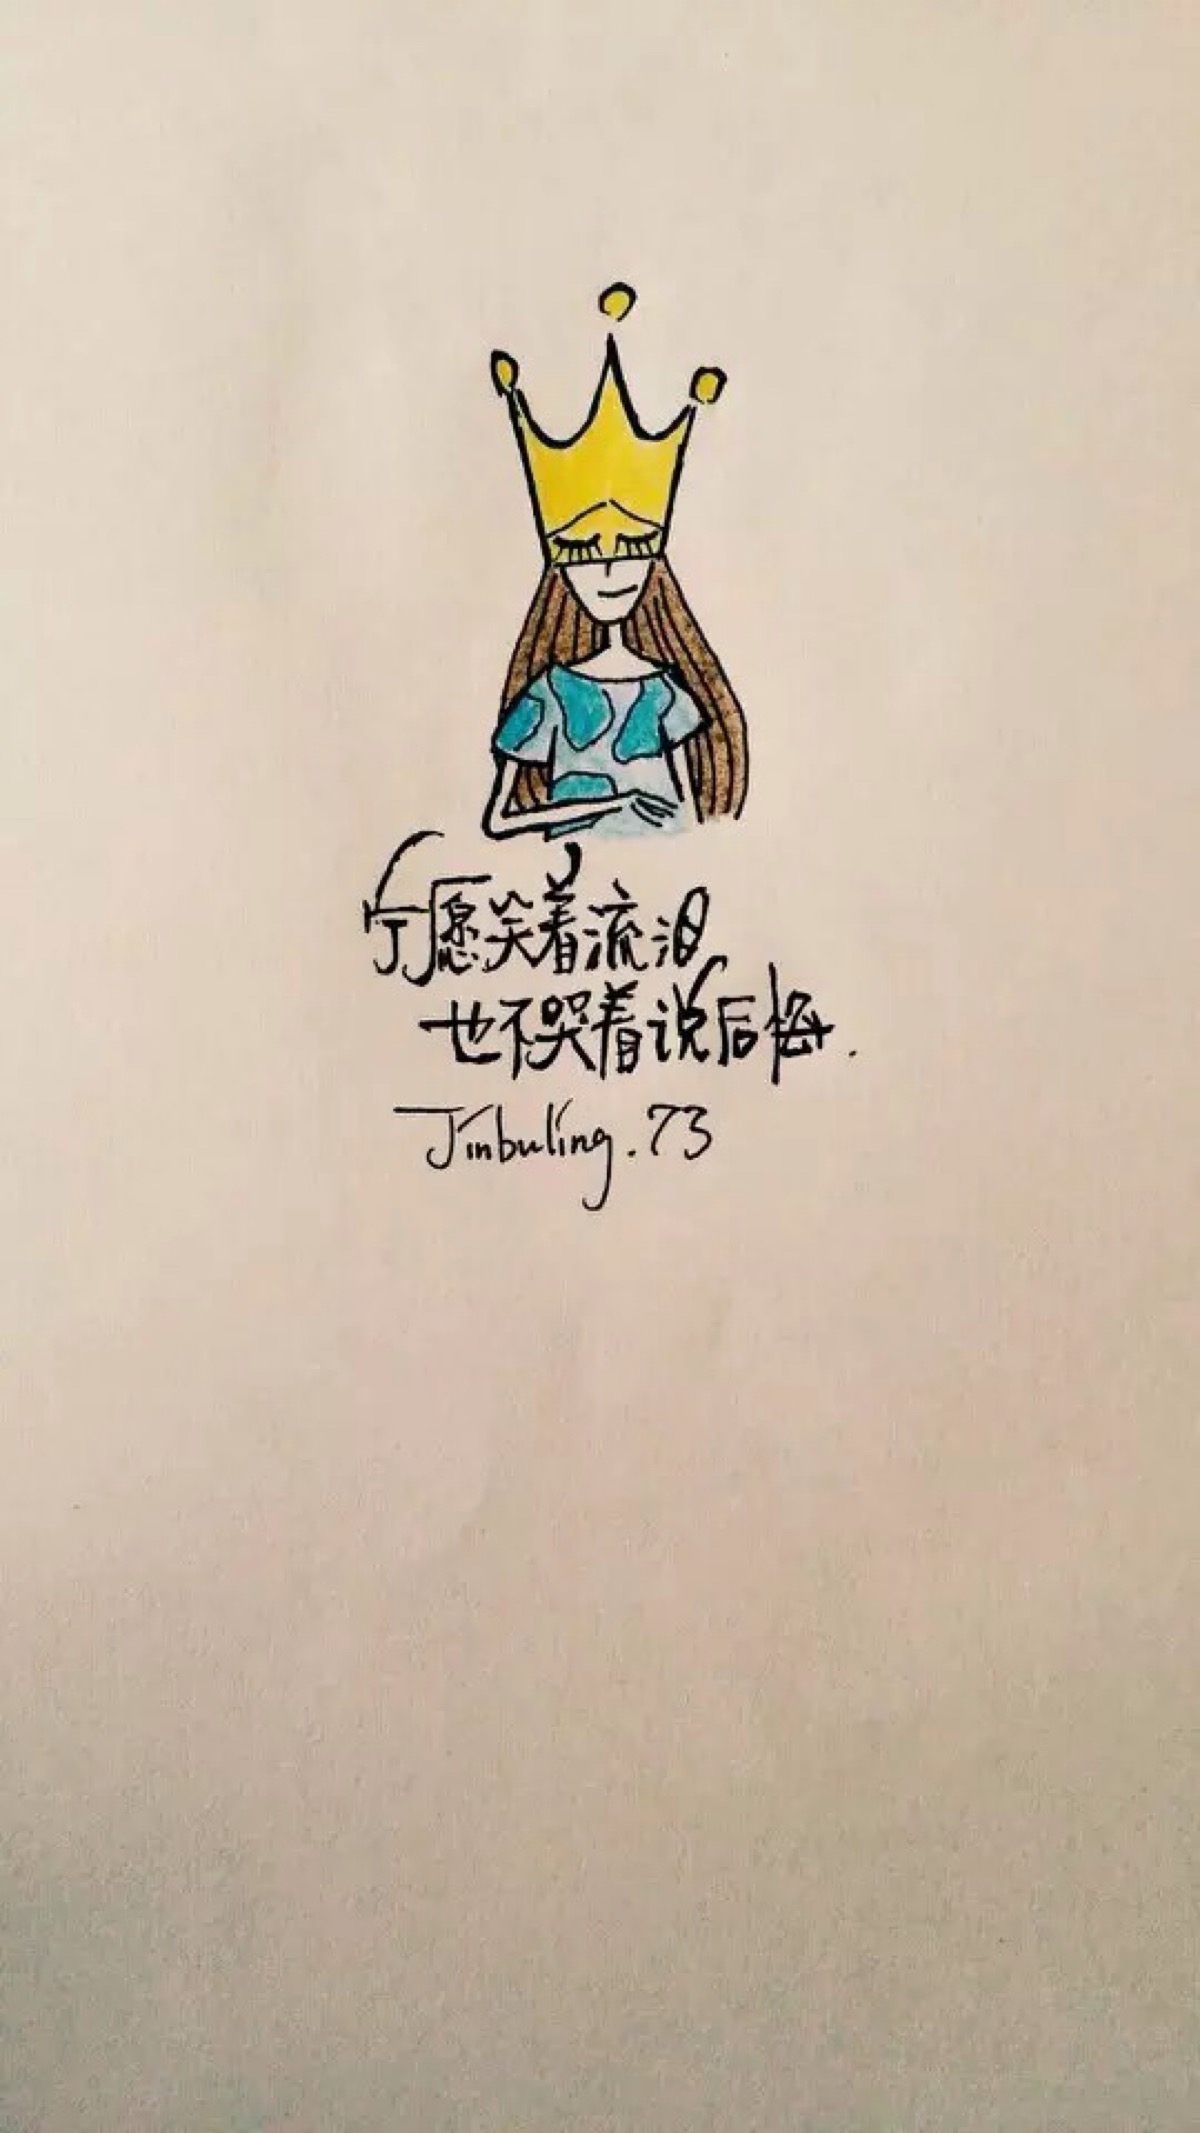 宁愿笑着流泪
也不哭着说后悔.
Jinbuling.73